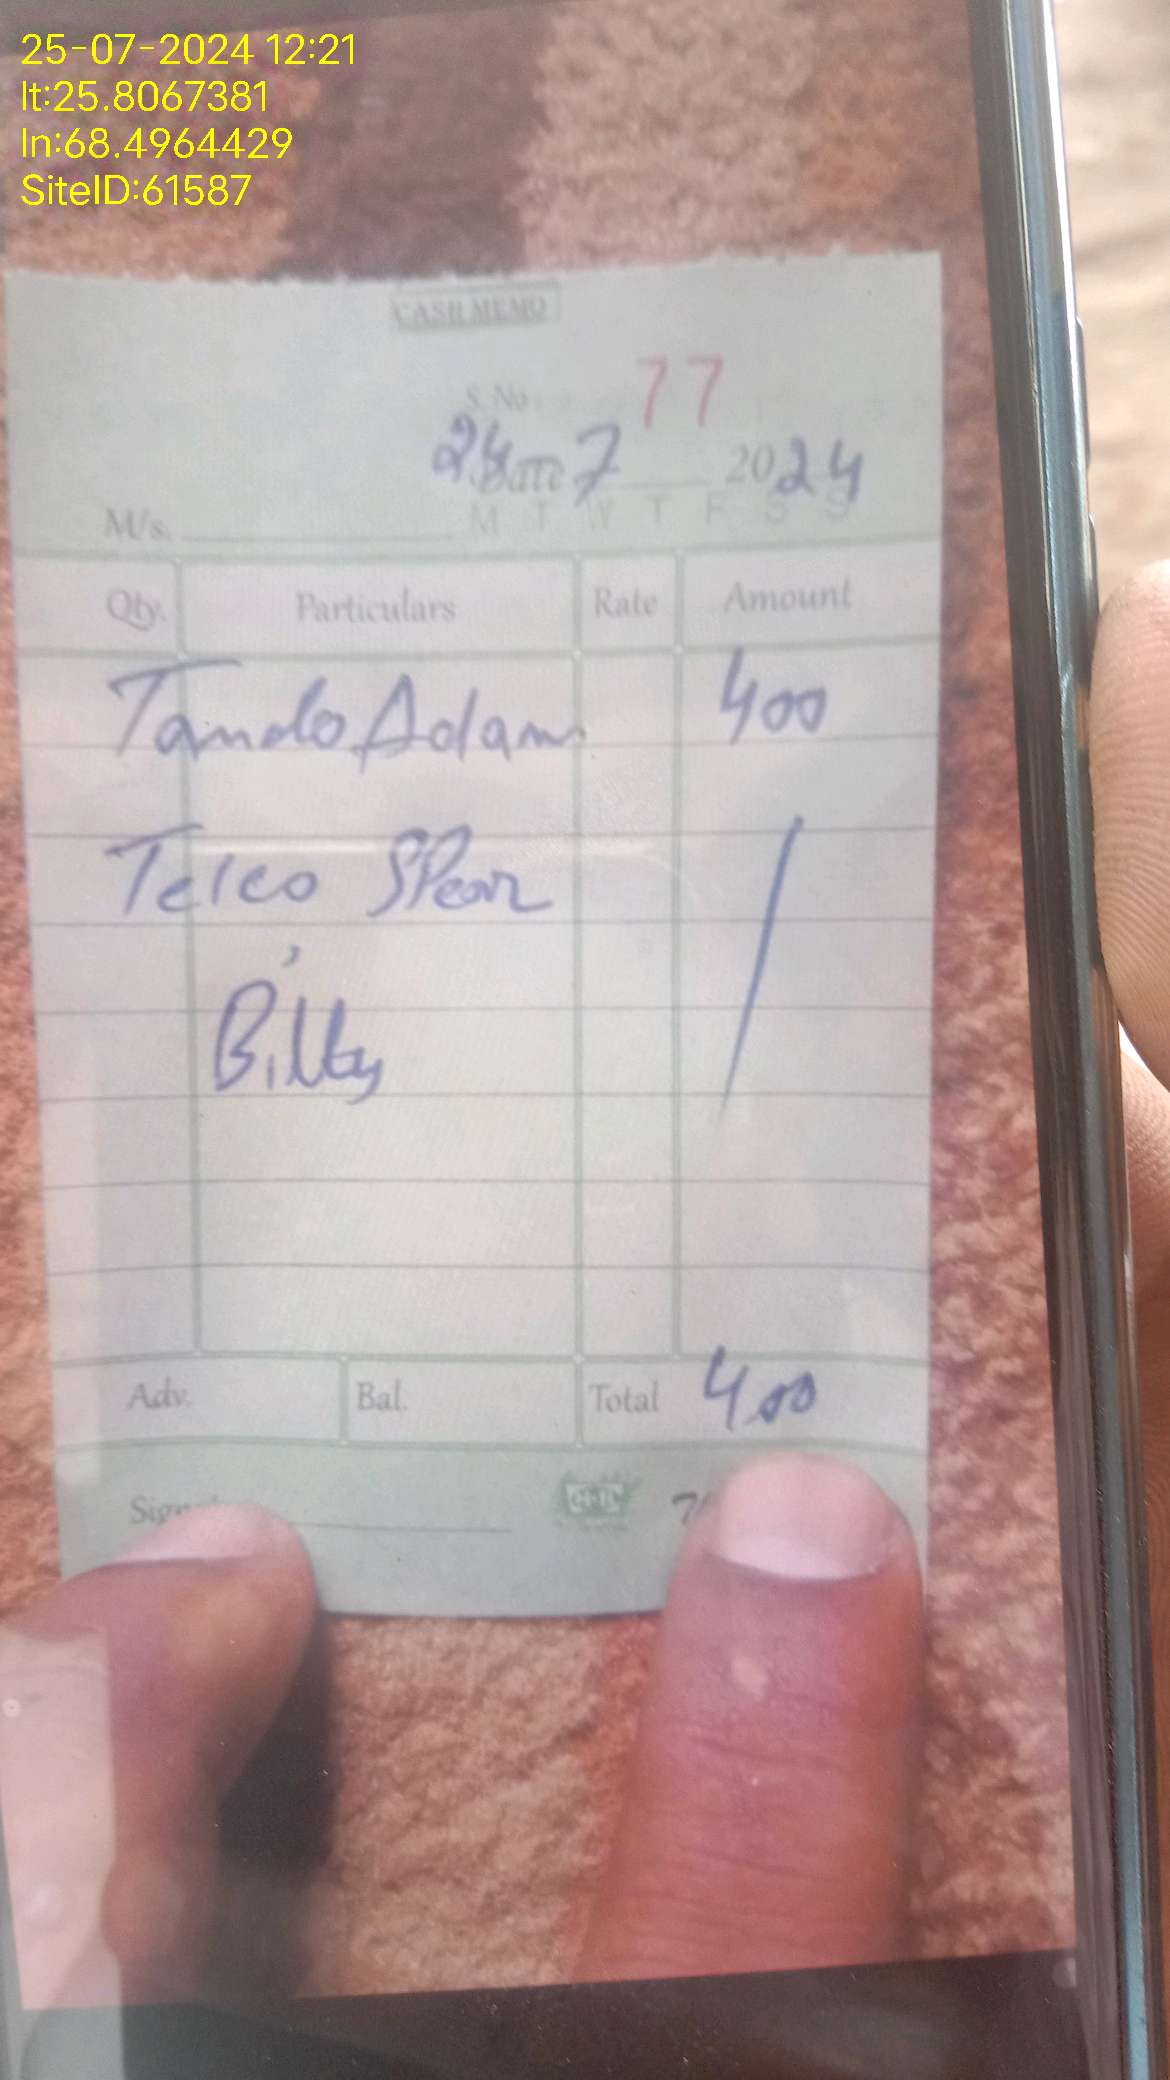 25-07-2024 12:21
lt:25.8067381
ln:68.4964429
SiteID:61587
CASH MEMO
S. No 77
24 Date 7 2024
M/s. M T W T F S S
Qty. Particulars Rate Amount
Tando Adam 400
Telco SPear
Bilty
Adv. Bal. Total 400